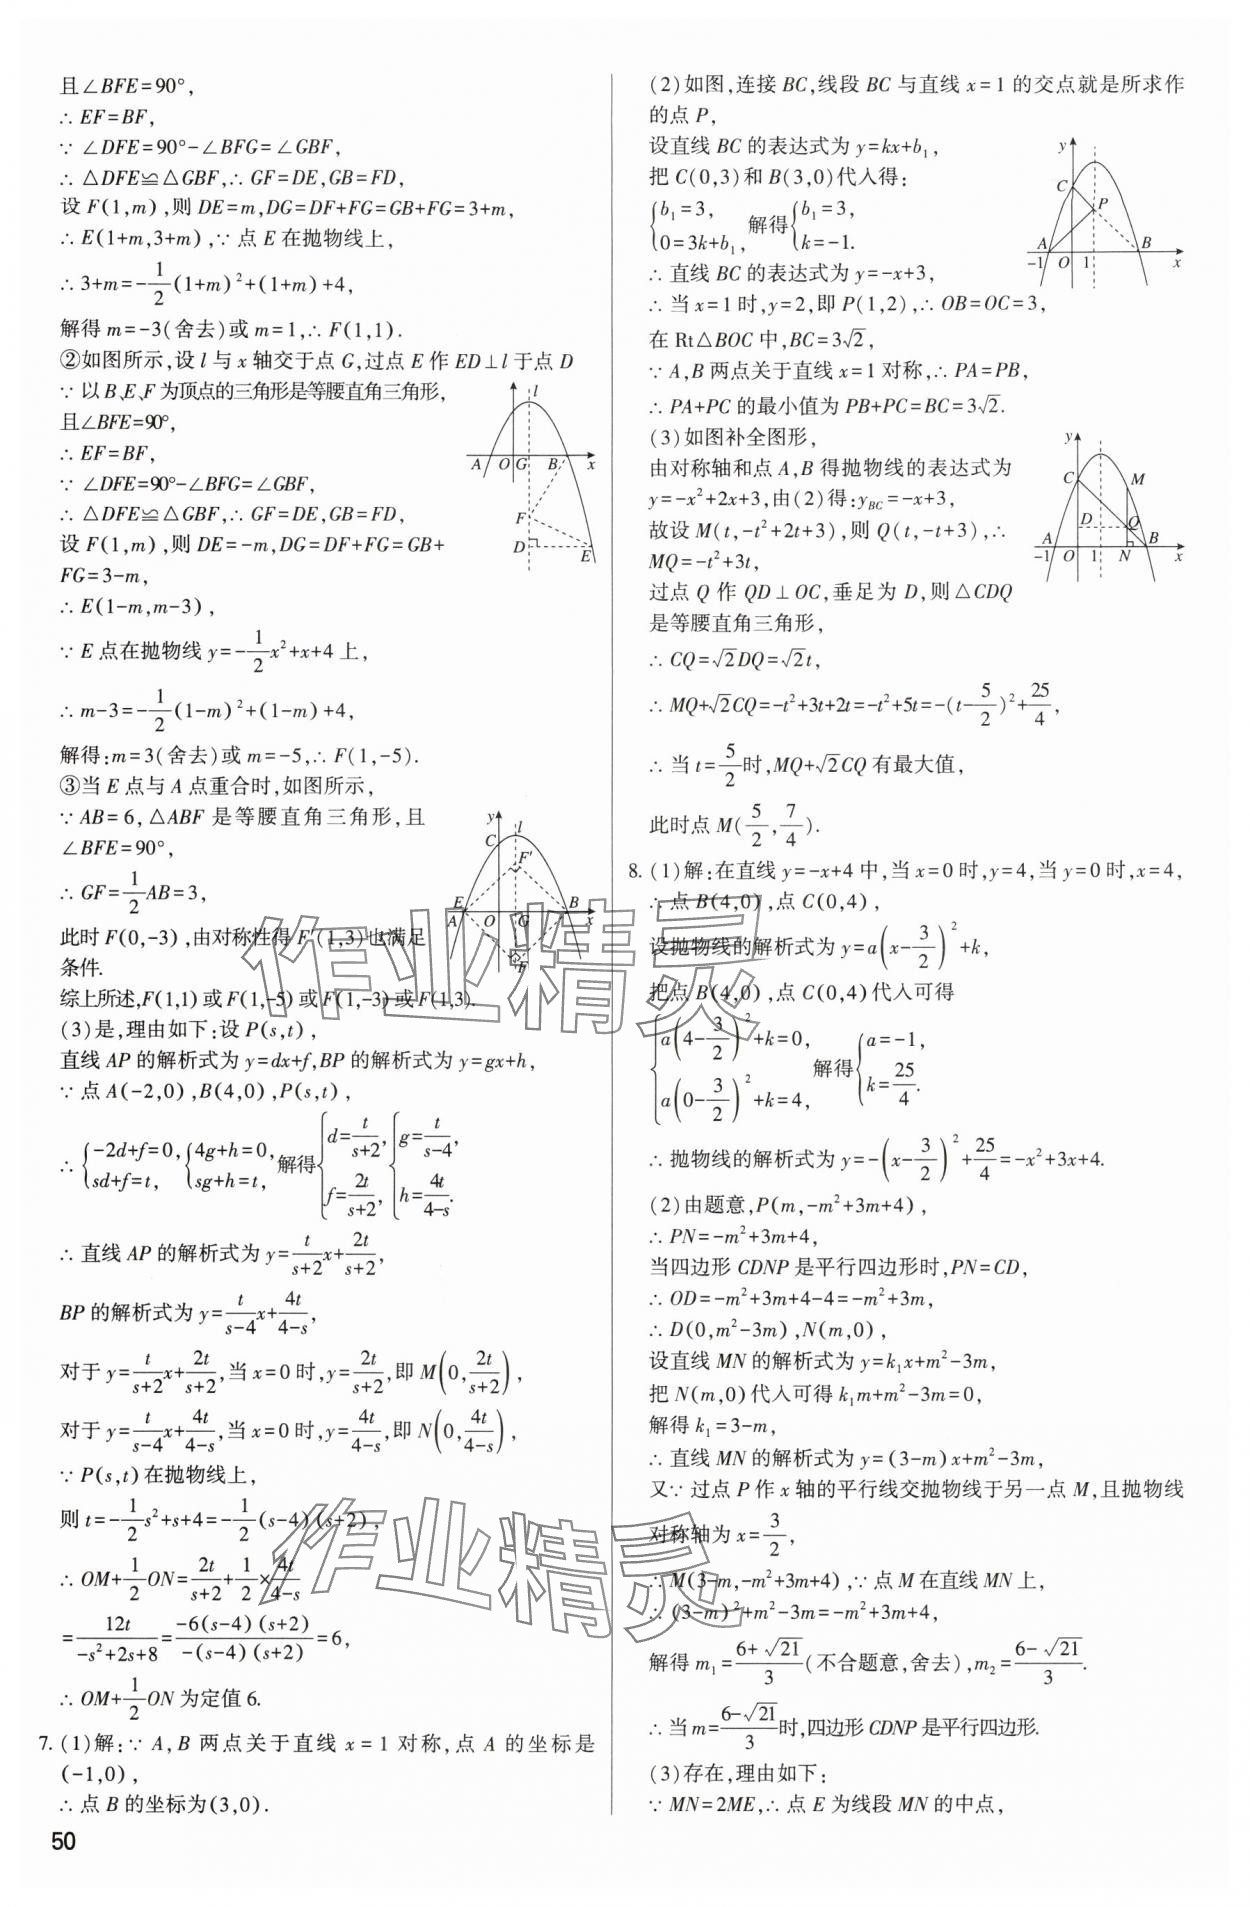 且∠BFE=90°,
∴ EF=BF,
∵ ∠DFE=90°-∠BFG=∠GBF,
∴ △DFE≌△GBF,∴ GF=DE,GB=FD,
设 F(1,m),则 DE=m,DG=DF+FG=GB+FG=3+m,
∴ E(1+m,3+m),∵ 点 E 在抛物线上,
∴ 3+m=-1/2(1+m)²+(1+m)+4,
解得 m=-3(舍去)或 m=1,∴ F(1,1).
②如图所示,设 l 与 x 轴交于点 G,过点 E 作 ED⊥l 于点 D
∵ 以 B、E、F 为顶点的三角形是等腰直角三角形,
且∠BFE=90°,
∴ EF=BF,
∵ ∠DFE=90°-∠BFG=∠GBF,
∴ △DFE≌△GBF,∴ GF=DE,GB=FD,
设 F(1,m),则 DE=-m,DG=DF+FG=GB+
FG=3-m,
∴ E(1-m,m-3),
∵ E 点在抛物线 y=-1/2x²+x+4 上,
∴ m-3=-1/2(1-m)²+(1-m)+4,
解得:m=3(舍去)或 m=-5,∴ F(1,-5).
③当 E 点与 A 点重合时,如图所示,
∵ AB=6,△ABF 是等腰直角三角形,且
∠BFE=90°,
∴ GF=1/2AB=3,
此时 F(0,-3),由对称性得 F′(1,3)也满足
条件.
综上所述,F(1,1)或 F(1,-5)或 F(1,-3)或 F(1,3).
(3)是,理由如下:设 P(s,t),
直线 AP 的解析式为 y=dx+f,BP 的解析式为 y=gx+h,
∵ 点 A(-2,0),B(4,0),P(s,t),
∴ {-2d+f=0, sd+f=t, {4g+h=0, sg+h=t, 解得{d=t/(s+2), f=2t/(s+2), {g=t/(s-4), h=4t/(4-s).
∴ 直线 AP 的解析式为 y=t/(s+2)x+2t/(s+2),
BP 的解析式为 y=t/(s-4)x+4t/(4-s),
对于 y=t/(s+2)x+2t/(s+2),当 x=0 时,y=2t/(s+2),即 M(0,2t/(s+2)),
对于 y=t/(s-4)x+4t/(4-s),当 x=0 时,y=4t/(4-s),即 N(0,4t/(4-s)),
∵ P(s,t)在抛物线上,
则 t=-1/2s²+s+4=-1/2(s-4)(s+2),
∴ OM+1/2ON=2t/(s+2)+1/2×4t/(4-s)
=12t/(-s²+2s+8)=-6(s-4)(s+2)/(-(s-4)(s+2))=6,
∴ OM+1/2ON 为定值 6.
7. (1)解:∵ A,B 两点关于直线 x=1 对称,点 A 的坐标是
(-1,0),
∴ 点 B 的坐标为(3,0).
50
(2)如图,连接 BC,线段 BC 与直线 x=1 的交点就是所求作
的点 P,
设直线 BC 的表达式为 y=kx+b₁,
把 C(0,3)和 B(3,0)代入得:
{b₁=3, 0=3k+b₁, 解得{b₁=3, k=-1.
∴ 直线 BC 的表达式为 y=-x+3,
∴ 当 x=1 时,y=2,即 P(1,2),∴ OB=OC=3,
在 Rt△BOC 中,BC=3√2,
∵ A,B 两点关于直线 x=1 对称,∴ PA=PB,
∴ PA+PC 的最小值为 PB+PC=BC=3√2.
(3)如图补全图形,
由对称轴和点 A,B 得抛物线的表达式为
y=-x²+2x+3,由(2)得:y_BC=-x+3,
故设 M(t,-t²+2t+3),则 Q(t,-t+3),∴
MQ=-t²+3t,
过点 Q 作 QD⊥OC,垂足为 D,则△CDQ
是等腰直角三角形,
∴ CQ=√2DQ=√2t,
∴ MQ+√2CQ=-t²+3t+2t=-t²+5t=-(t-5/2)²+25/4,
∴ 当 t=5/2时,MQ+√2CQ 有最大值,
此时点 M(5/2,7/4).
8. (1)解:在直线 y=-x+4 中,当 x=0 时,y=4,当 y=0 时,x=4,
∴ 点 B(4,0),点 C(0,4),
设抛物线的解析式为 y=a(x-3/2)²+k,
把点 B(4,0),点 C(0,4)代入可得
{a(4-3/2)²+k=0, a(0-3/2)²+k=4, 解得{a=-1, k=25/4.
∴ 抛物线的解析式为 y=-(x-3/2)²+25/4=-x²+3x+4.
(2)由题意,P(m,-m²+3m+4),
∴ PN=-m²+3m+4,
当四边形 CDNP 是平行四边形时,PN=CD,
∴ OD=-m²+3m+4-4=-m²+3m,
∴ D(0,m²-3m),N(m,0),
设直线 MN 的解析式为 y=k₁x+m²-3m,
把 N(m,0)代入可得 k₁m+m²-3m=0,
解得 k₁=3-m,
∴ 直线 MN 的解析式为 y=(3-m)x+m²-3m,
又∵ 过点 P 作 x 轴的平行线交抛物线于另一点 M,且抛物线
对称轴为 x=3/2,
∴ M(3-m,-m²+3m+4),∵ 点 M 在直线 MN 上,
∴ (3-m)²+m²-3m=-m²+3m+4,
解得 m₁=(6+√21)/3(不合题意,舍去),m₂=(6-√21)/3.
∴ 当 m=(6-√21)/3时,四边形 CDNP 是平行四边形.
(3)存在,理由如下:
∵ MN=2ME,∴ 点 E 为线段 MN 的中点,
作业精灵
作业精灵